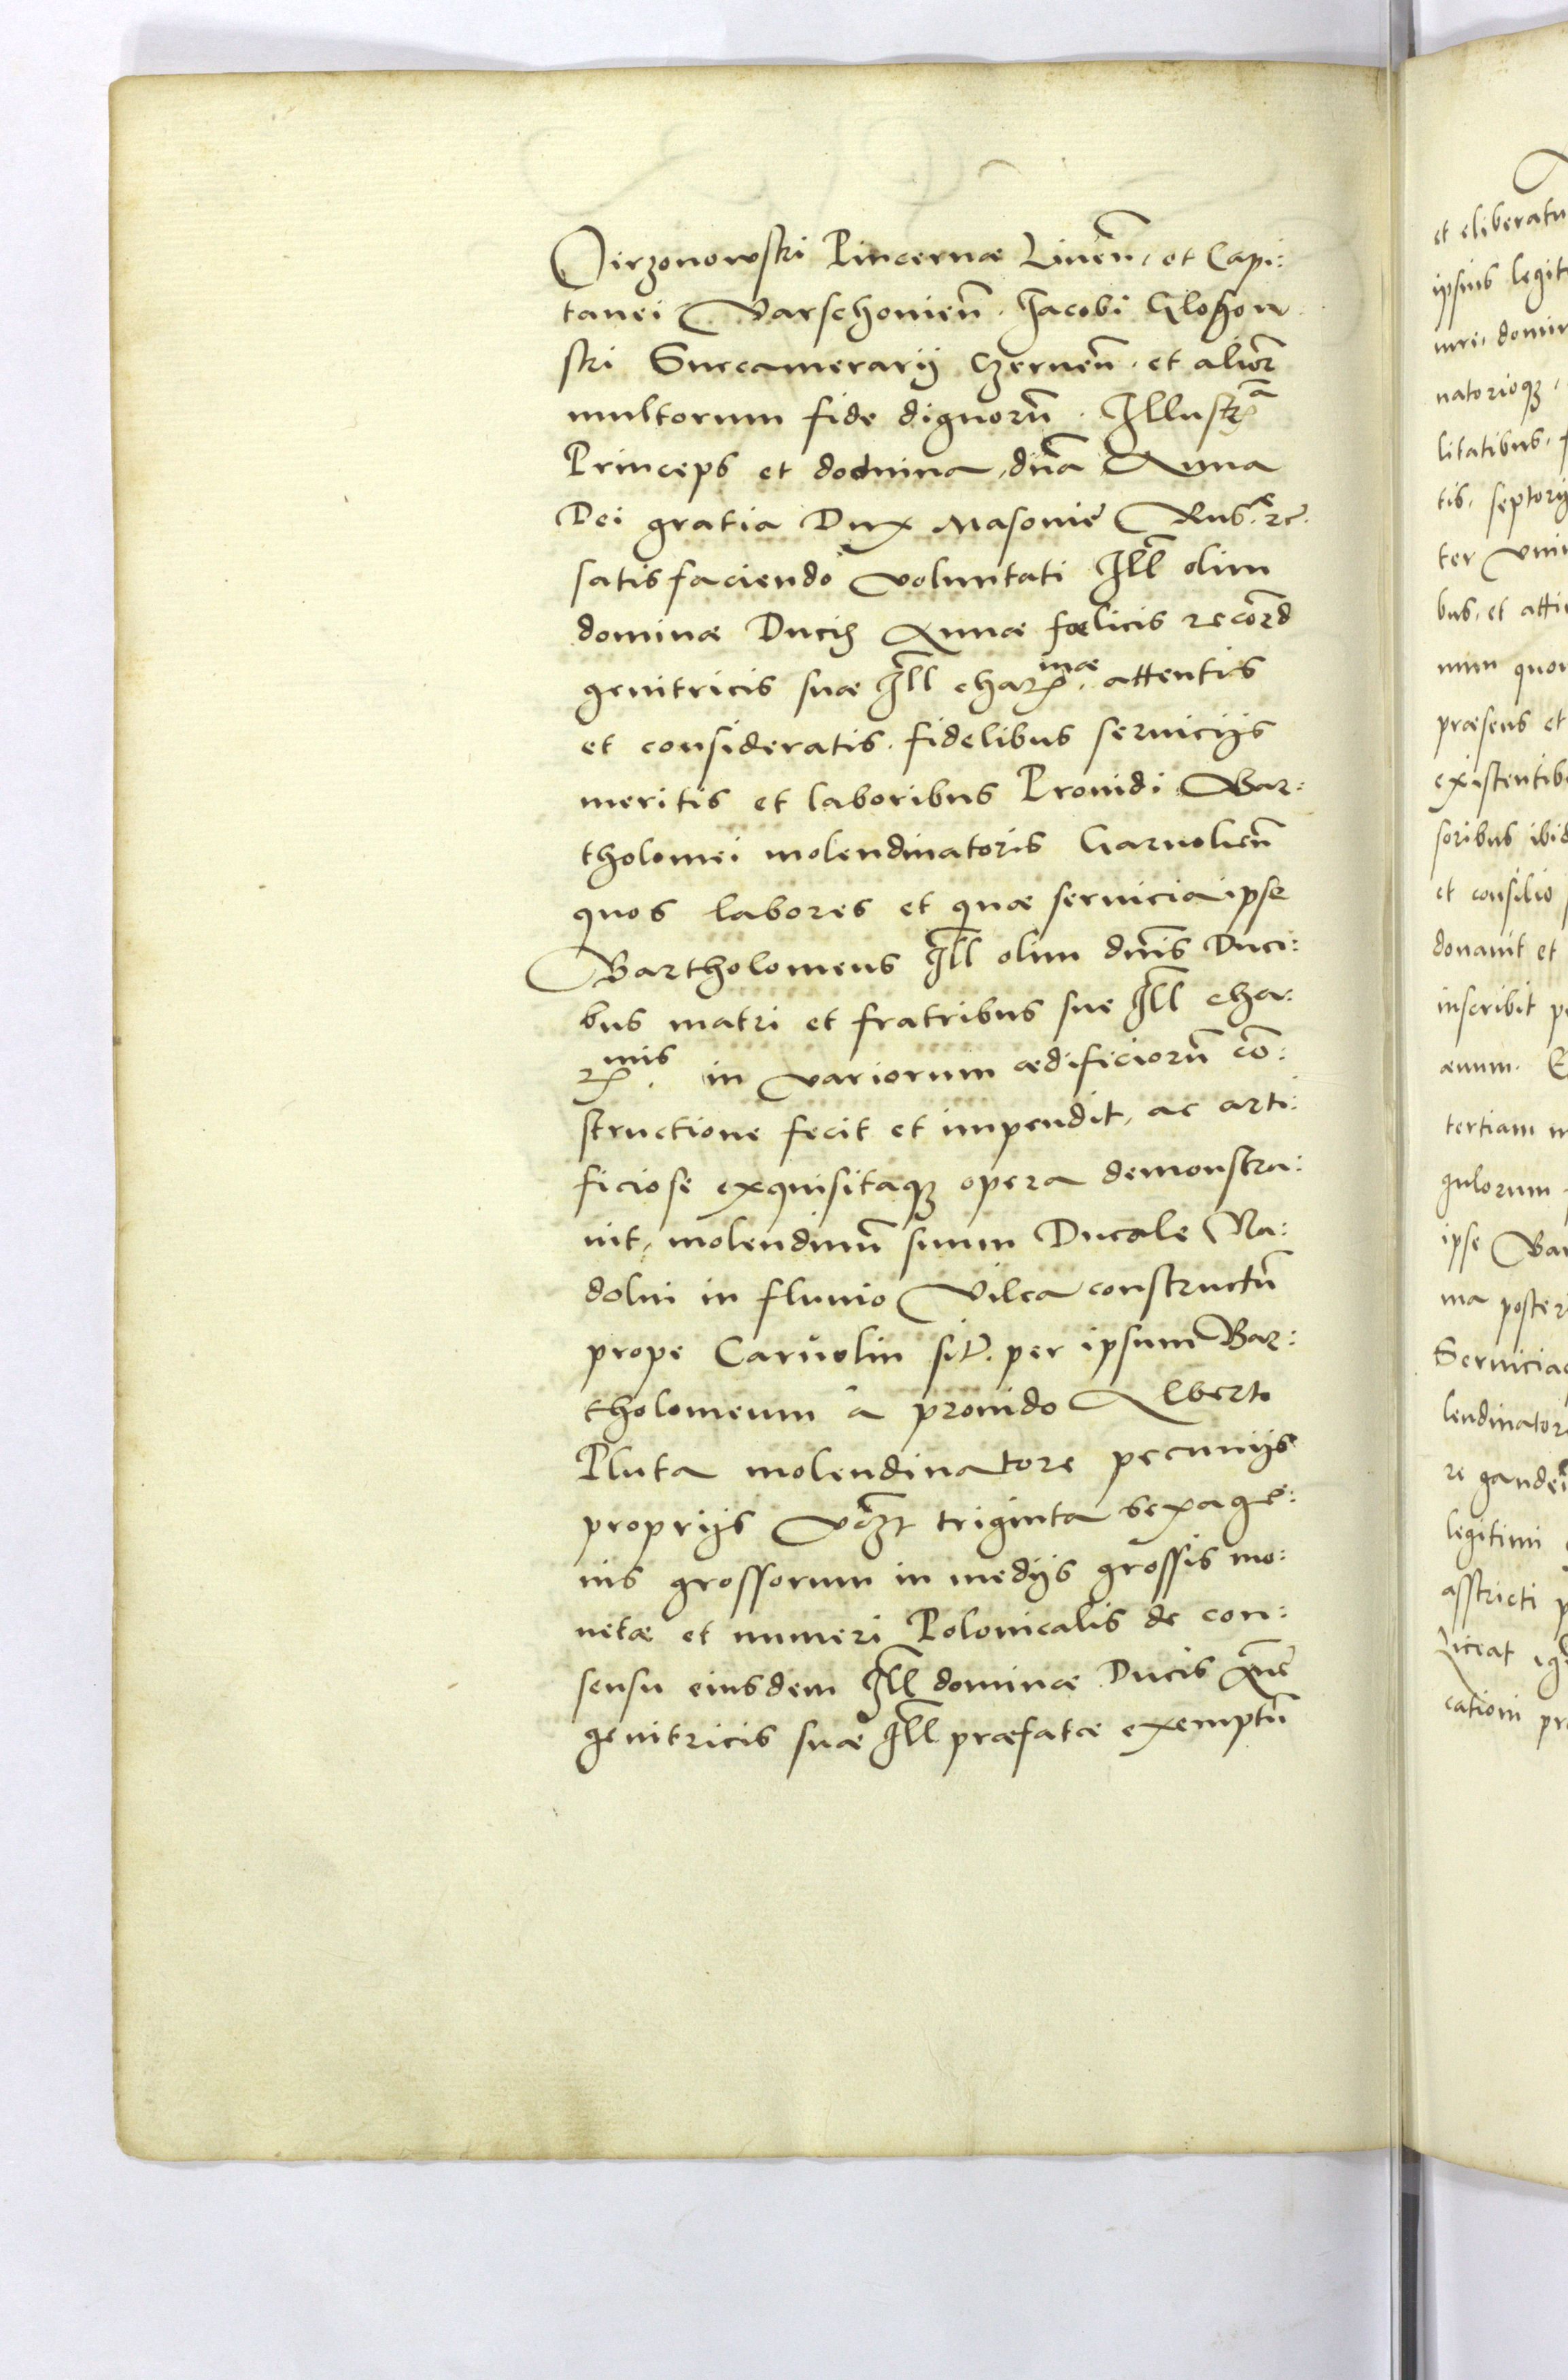 Dirzonowski Pincernæ Liuen̄. et Capi:
tanei Varschouien̄. Jacobi Glosкow
ski Succamerarij Czernen̄. et alior̄
multorum fide dignorū. Illustrᵃ
Princeps et domina, dn̄a Anna
Dei gratia Dux Masouie Rusᵉ. zc̄.
satisfaciendo voluntati Ill̄ olim
dominæ Ducis Annæ fœlicis recōrd
genitricis suæ Ill̄ charᵐᵃᵉ. attentis
et consideratis. fidelibus seruicijs
meritis et laboribus Prouidi Bar:
tholomei molendinatoris Garuolien̄
quos labores et quæ seruicia ipse
Bartholomeus Ill̄ olim dn̄is Duci:
bus matri et fratribus sue Ill̄ cha:
rᵐⁱˢ. in variorum ædificiorū cō:
structione fecit et impendit, ac arti:
ficiose exquisitaqꝫ opera demonstra:
uit, molendinū suum Ducale Na:
dolni in fluuio Vilca constructū
prope Garuolin sit̄. per ipsum Bar:
tholomeum à prouido Alberto
Pluta molendinatore pecunijs
proprijs vꝫt triginta sexage:
nis grossorum in medijs grossis mo:
netæ et numeri Polonicalis de con:
sensu eiusdem Ill̄ dominæ Ducis Ann̄e
genitricis suæ Ill̄ præfatæ exemptū
et eliberatu
ipsius legit
iure, domin
natorioqꝫ,
litatibus,
tis, septorij
ter vni
bus, et atti
num quon
præsens et
existentib
soribus ibid
et consilio
donauit et
inscribit p
æuum. E
tertiam m
gulorum
ipse Bar
ma poster
Seruicia
lendinator
re gaude
legitimi
asstricti p
Liceat
cationi pr